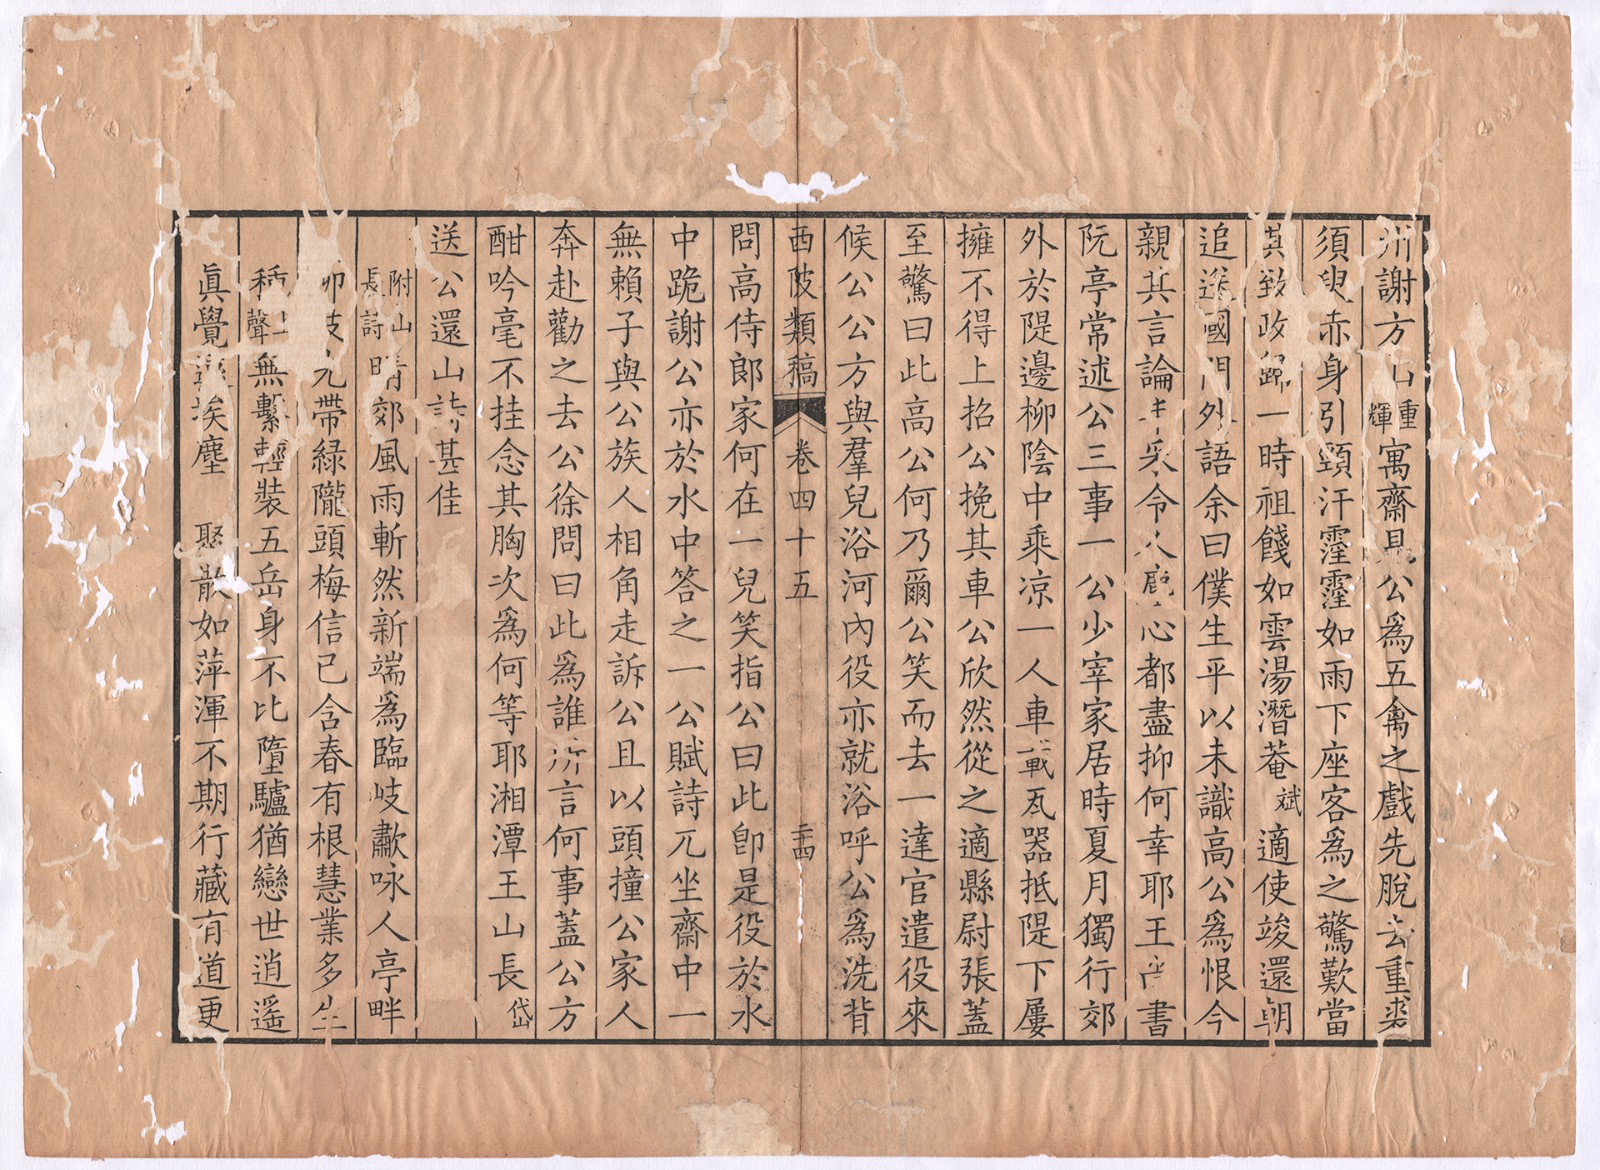 州謝方山重輝寓齋見公爲五禽之戲先脫去重裘
須臾赤身引頸汗霪霪如雨下座客爲之驚歎當
其致政歸一時祖餞如雲湯潛菴斌適使竣還朝
追送國門外語余曰僕生平以未識高公爲恨今
親其言論丰采令人鄙心都盡抑何幸耶王尚書
阮亭常述公三事一公少宰家居時夏月獨行郊
外於隄邊柳陰中乘凉一人車載瓦器抵隄下屢
擁不得上招公挽其車公欣然從之適縣尉張蓋
至驚曰此高公何乃爾公笑而去一達官遣役來
候公公方與羣兒浴河內役亦就浴呼公爲洗背
西陂類稿 卷四十五 三十四
問高侍郎家何在一兒笑指公曰此卽是役於水
中跪謝公亦於水中答之一公賦詩兀坐齋中一
無賴子與公族人相角走訴公且以頭撞公家人
奔赴勸之去公徐問曰此爲誰所言何事蓋公方
酣吟毫不挂念其胸次爲何等耶湘潭王山長岱
送公還山詩甚佳
附山長詩晴郊風雨斬然新端爲臨岐歗咏人亭畔
柳枝九帶綠隴頭梅信已含春有根慧業多生
種聲無繫輕裝五岳身不比墮驢猶戀世逍遙
眞覺遠埃塵 聚散如萍渾不期行藏有道更